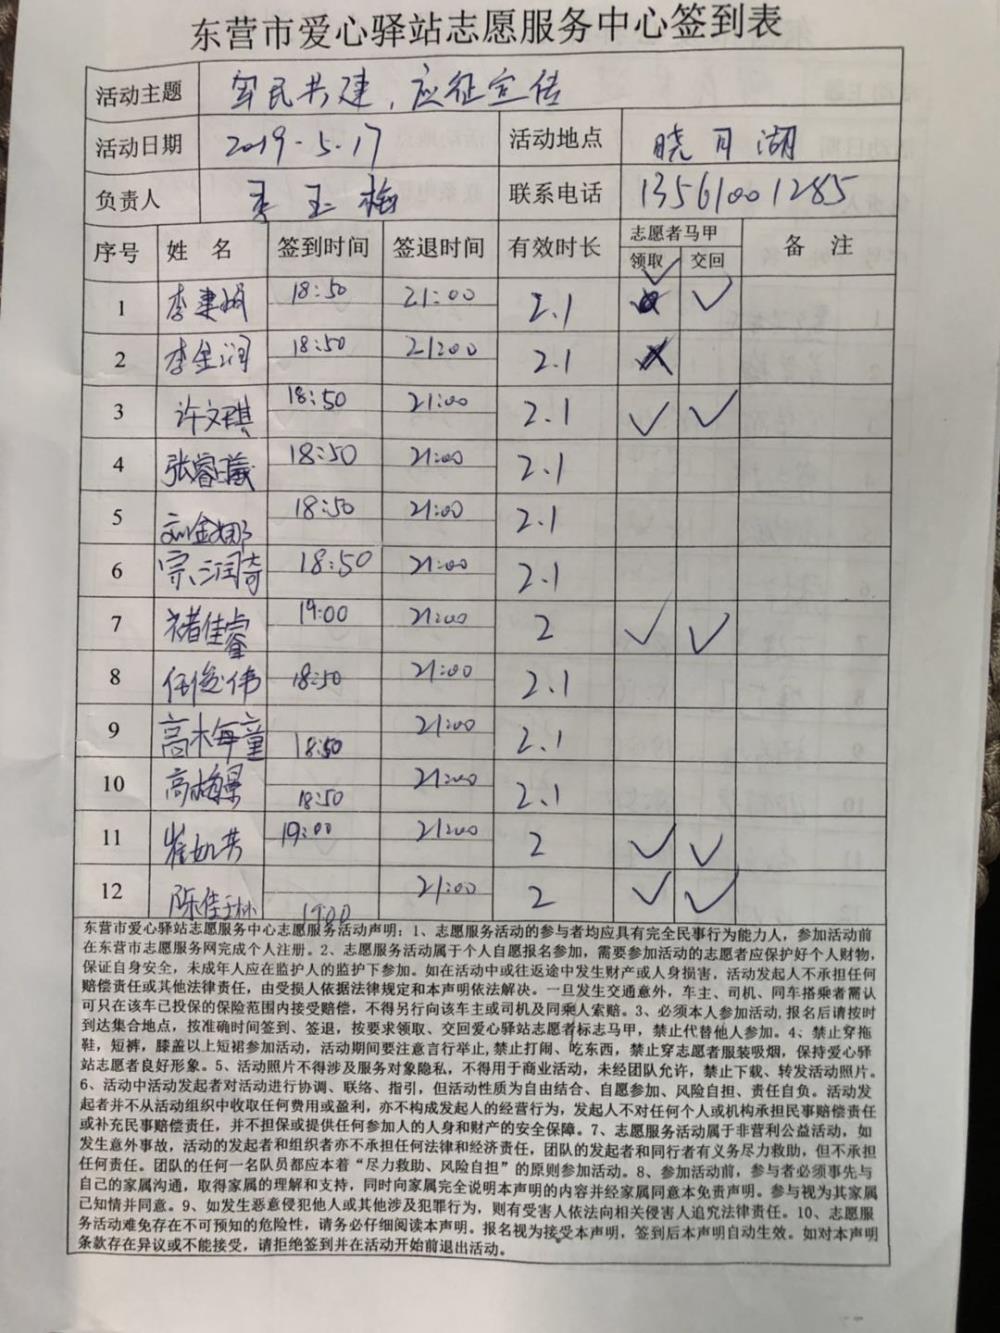 东营市爱心驿站志愿服务中心签到表
活动主题 军民共建，应征宣传
活动日期 2019-5-17 活动地点 晓月湖
负责人 李玉梅 联系电话 13561001285
序号 姓 名 签到时间 签退时间 有效时长 志愿者马甲 备 注
领取 交回
1 李建 18:50 21:00 2.1
2 李金润 18:50 21:00 2.1
3 许文琪 18:50 21:00 2.1
4 张睿曦 18:50 21:00 2.1
5 刘金娜 18:50 21:00 2.1
6 宗润奇 18:50 21:00 2.1
7 褚佳睿 19:00 21:00 2
8 任俊伟 18:50 21:00 2.1
9 高梅童 18:50 21:00 2.1
10 高梅景 18:50 21:00 2.1
11 崔如芳 19:00 21:00 2
12 陈佳琳 19:00 21:00 2
东营市爱心驿站志愿服务中心志愿服务活动声明：1、志愿服务活动的参与者均应具有完全民事行为能力人，参加活动前
在东营市志愿服务网完成个人注册。2、志愿服务活动属于个人自愿报名参加，需要参加活动的志愿者应保护好个人财物，
保证自身安全，未成年人应在监护人的监护下参加。如在活动中或往返途中发生财产或人身损害，活动发起人不承担任何
赔偿责任或其他法律责任，由受损人依据法律规定和本声明依法解决。一旦发生交通意外，车主、司机、同车搭乘者需认
可只在该车已投保的保险范围内接受赔偿，不得另行向该车主或司机及同乘人索赔。3、必须本人参加活动,报名后请按时
到达集合地点，按准确时间签到、签退，按要求领取、交回爱心驿站志愿者标志马甲，禁止代替他人参加。4、禁止穿拖
鞋，短裤，膝盖以上短裙参加活动，活动期间要注意言行举止,禁止打闹、吃东西，禁止穿志愿者服装吸烟，保持爱心驿
站志愿者良好形象。5、活动照片不得涉及服务对象隐私，不得用于商业活动，未经团队允许，禁止下载、转发活动照片。
6、活动中活动发起者对活动进行协调、联络、指引，但活动性质为自由结合、自愿参加、风险自担、责任自负。活动发
起者并不从活动组织中收取任何费用或盈利，亦不构成发起人的经营行为，发起人不对任何个人或机构承担民事赔偿责任
或补充民事赔偿责任，并不担保或提供任何参加人的人身和财产的安全保障。7、志愿服务活动属于非营利公益活动，如
发生意外事故，活动的发起者和组织者亦不承担任何法律和经济责任，团队的发起者和同行者有义务尽力救助，但不承担
任何责任。团队的任何一名队员都应本着“尽力救助、风险自担”的原则参加活动。8、参加活动前，参与者必须事先与
自己的家属沟通，取得家属的理解和支持，同时向家属完全说明本声明的内容并经家属同意本免责声明。参与视为其家属
已知情并同意。9、如发生恶意侵犯他人或其他涉及犯罪行为，则有受害人依法向相关侵害人追究法律责任。10、志愿服
务活动难免存在不可预知的危险性，请务必仔细阅读本声明。报名视为接受本声明，签到后本声明自动生效。如对本声明
条款存在异议或不能接受，请拒绝签到并在活动开始前退出活动。